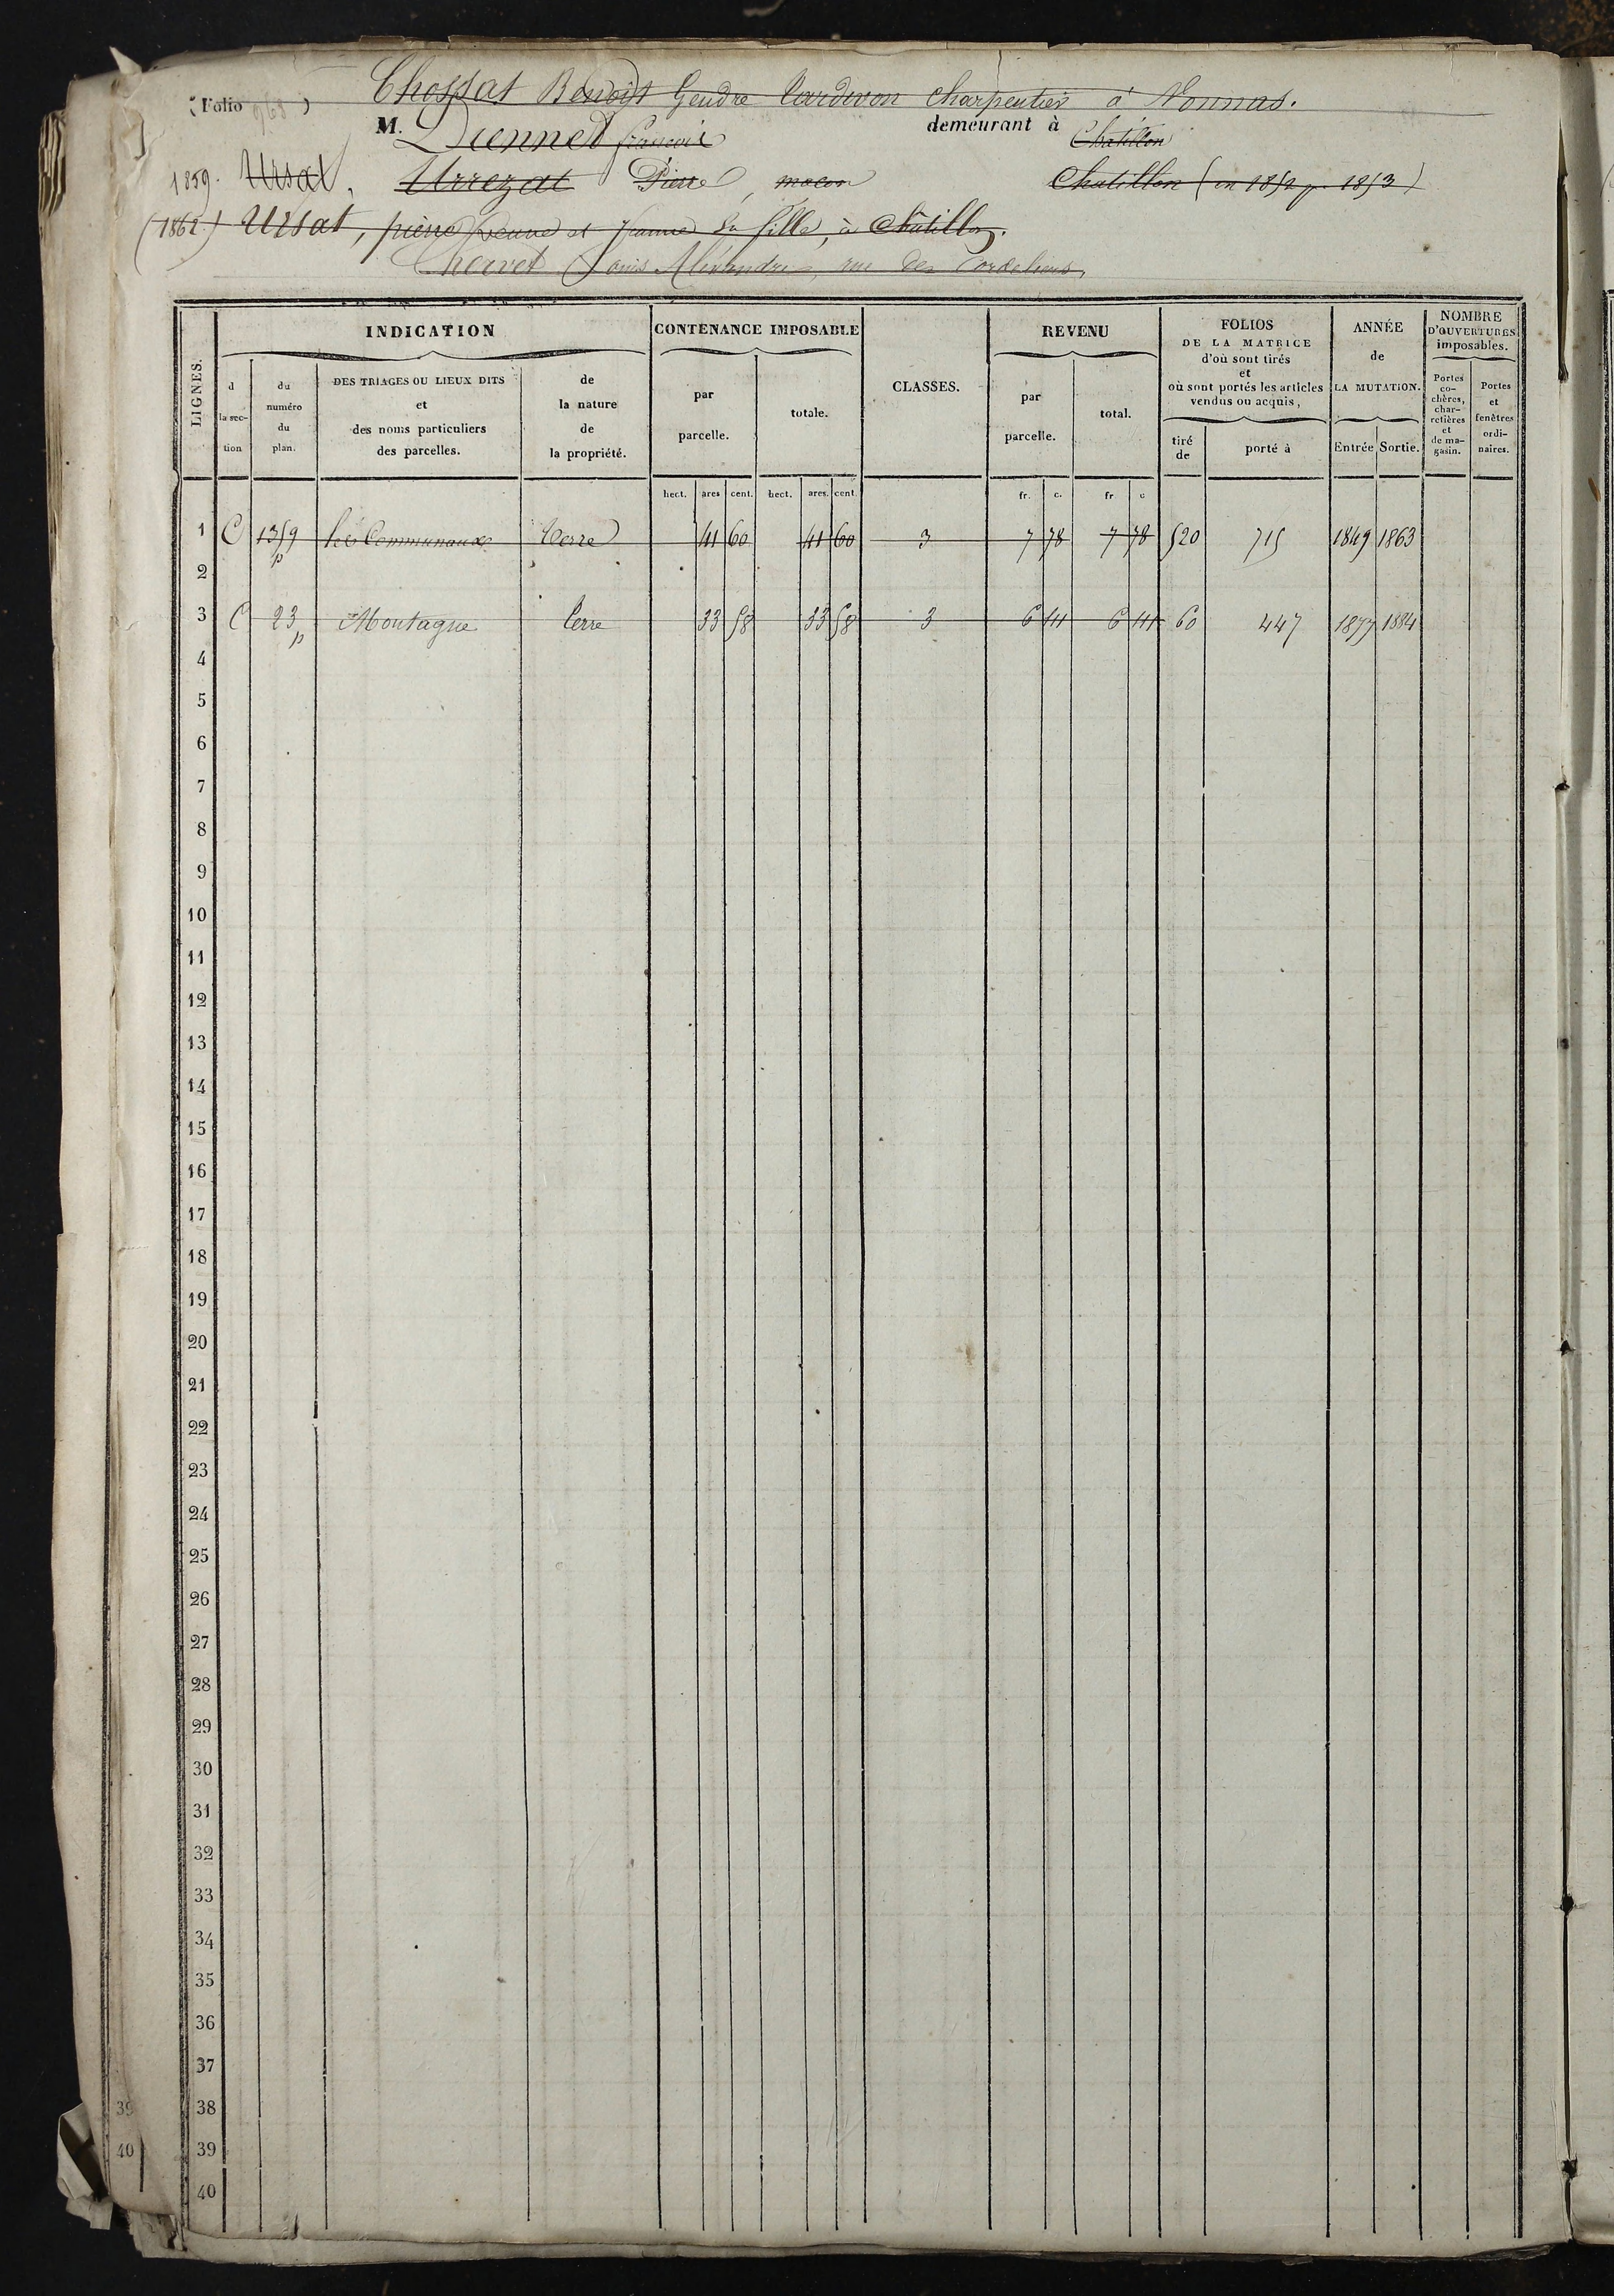 Chossat Benoît Gendre Cardivon Charpentier à Vonnas.
(Folio 968)
M. Diennet françois demeurant à Chatillon
1859. Ursat, Urrezat Pierre, macon Chatillon (en 1852 p. 1853)
(1862) Ursat, pierre veuve et Jeanne sa fille, à Châtillon.
Chervet Louis Alexandre, rue des Cordeliers,
LIGNES.
INDICATION
CONTENANCE IMPOSABLE
CLASSES.
REVENU
FOLIOS
DE LA MATRICE
d'où sont tirés
et
où sont portés les articles
vendus ou acquis,
ANNÉE
de
LA MUTATION.
NOMBRE
D'OUVERTURES
imposables.
d
la sec-
tion
du
numéro
du
plan.
DES TRIAGES OU LIEUX DITS
et
des noms particuliers
des parcelles.
de
la nature
de
la propriété.
par
parcelle.
totale.
par
parcelle.
total.
tiré
de
porté à
Entrée
Sortie.
Portes
co-
chères,
char-
retières
et
de ma-
gasin.
Portes
et
fenêtres
ordi-
naires.
hect. ares cent. hect. ares. cent. fr. c. fr c
1 C 1359 p les Communaux Terre 41 60 41 60 3 7 78 7 78 520 715 1849 1863
2
3 C 23 p Montagne Terre 33 58 33 58 3 6 44 6 44 60 447 1877 1884
4
5
6
7
8
9
10
11
12
13
14
15
16
17
18
19
20
21
22
23
24
25
26
27
28
29
30
31
32
33
34
35
36
37
39 38
40 39
40